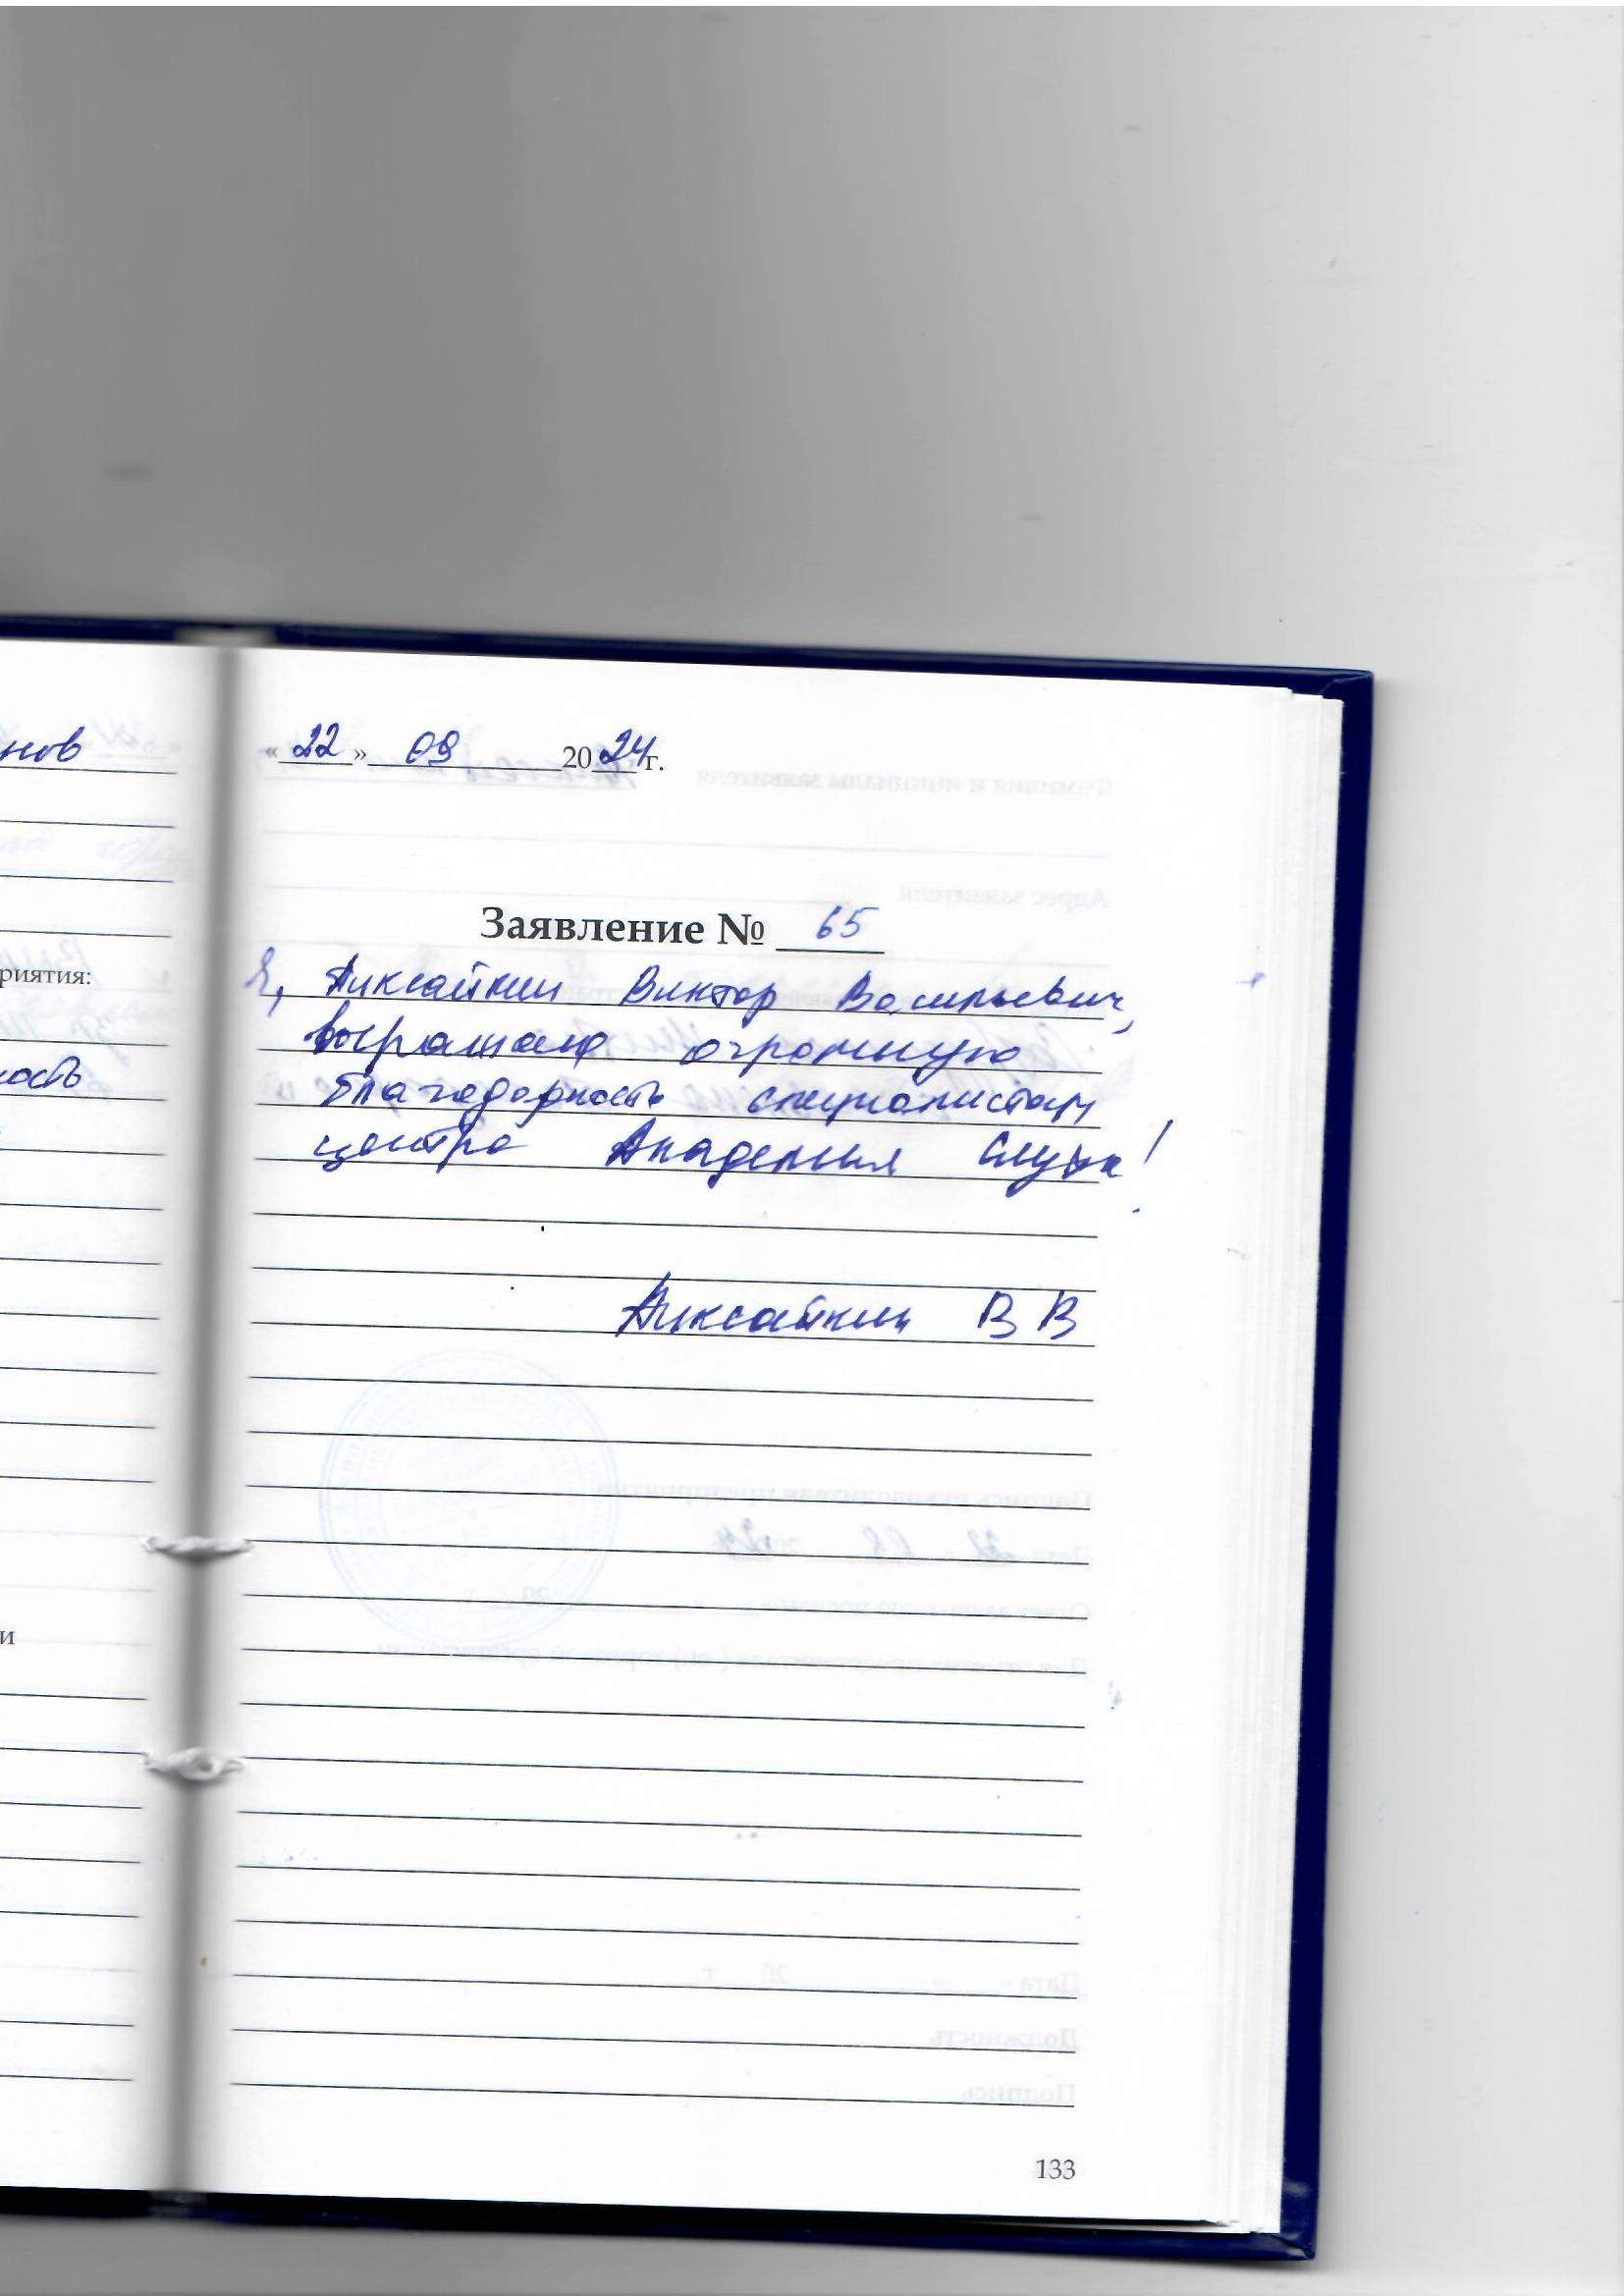 нов
риятия:
ость
и
« 22 » 09 2024 г.
Заявление № 65
Я, Аиксайкин Виктор Васильевич,
выражаю огромную
благодарность специалистам
центра Академия Слуха!
Аиксайкин В В
133